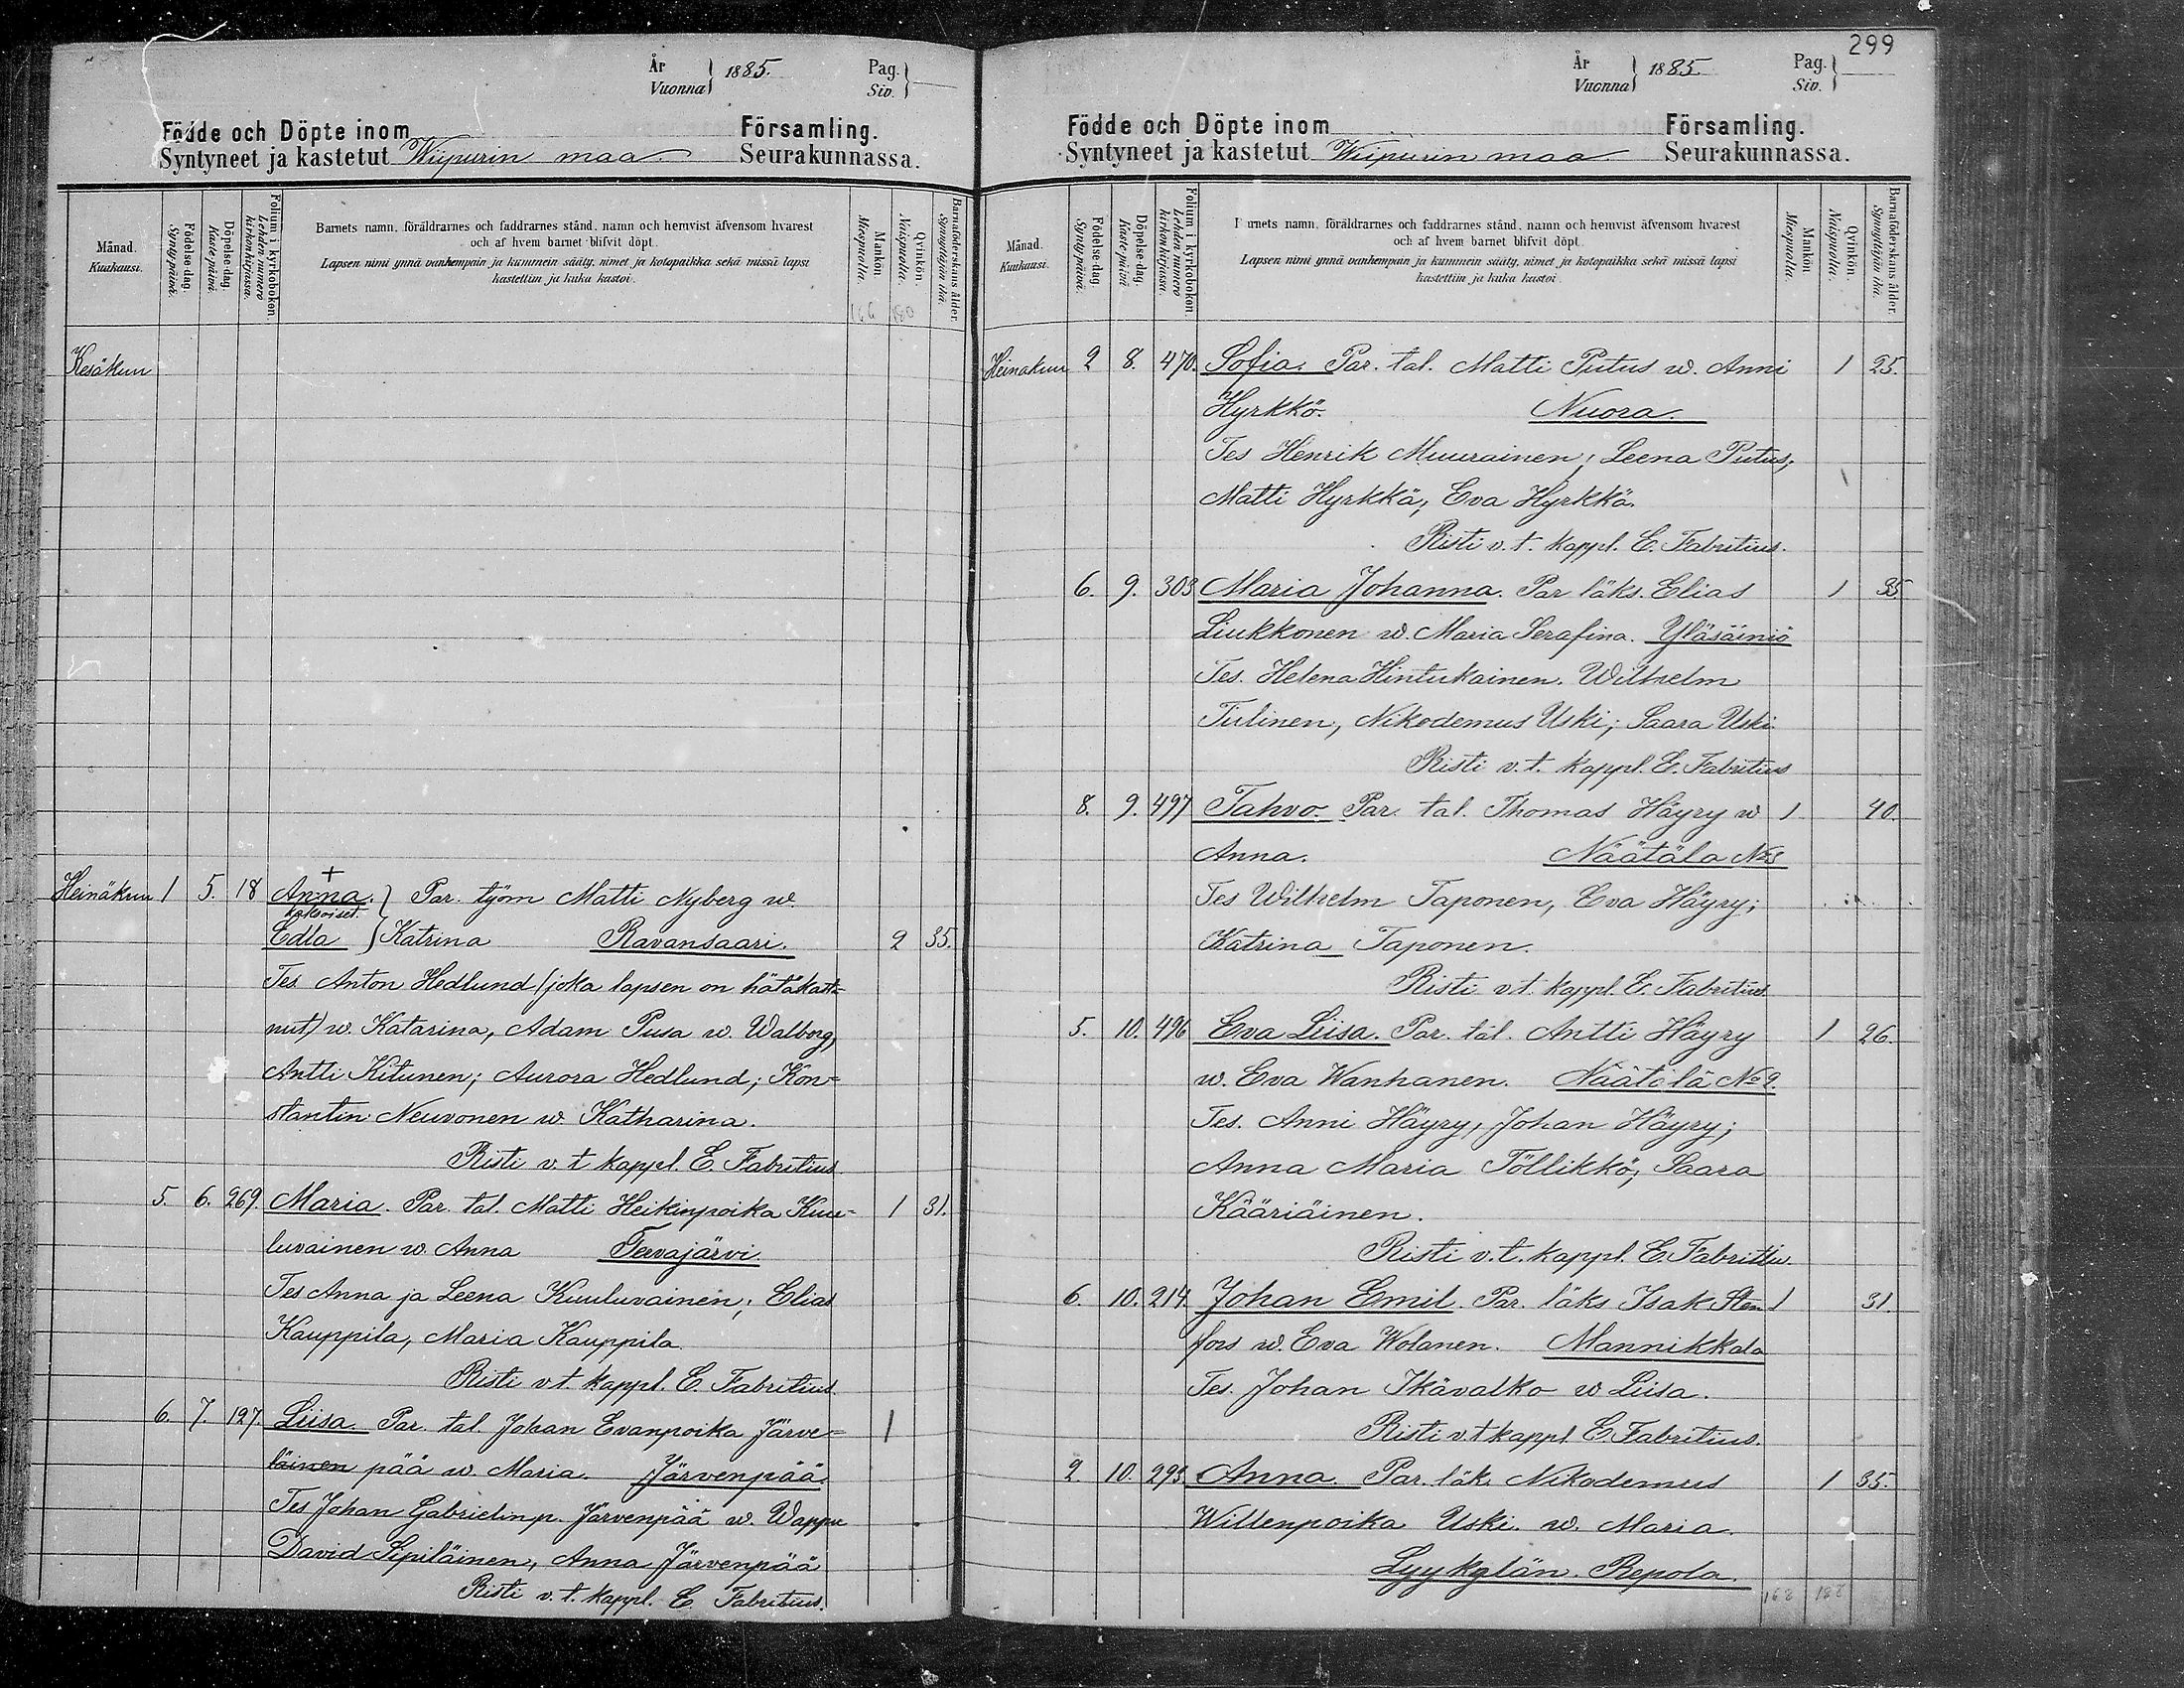 År
Vuonna } 1885.
Pag.
Siv. }
Födde och Döpte inom Församling.
Syntyneet ja kastetut Wiipurin maa Seurakunnassa.
Månad.
Kuukausi.
Födelse-dag.
Synty päivä.
Döpelse-dag.
Kaste päivä.
Folium i kyrkobokon
Lehden numero
kirkonkirjassa.
Barnets namn, föräldrarnes och faddrarnes stånd, namn och hemvist äfvensom hvarest
och af hvem barnet blifvit döpt.
Lapsen nimi ynnä vanhempain ja kummein sääty, nimet ja kotopaikka sekä missä lapsi
kastettiin ja kuka kastoi.
Mankön.
Miespuolta.
Qvinkön.
Naispuolta.
Barnaföderskans ålder.
Synnyttäjän ikä.
166 180
Kesäkuu
Heinäkuu 1 5. 18 + Anna. } Par. työm Matti Nyberg w.
kaksoiset.
Edla } Katrina Ravansaari. 2 35.
Tes Anton Hedlund (joka lapsen on hätäkast=
nut) w. Katarina, Adam Pusa w. Walborg,
Antti Kitunen; Aurora Hedlund; Kon=
stantin Neuvonen w. Katharina.
Risti v. t kappl. E. Fabritius.
5. 6. 269. Maria. Par. tal. Matti Heikinpoika Kuu= 1 31.
luvainen w. Anna Tervajärvi.
Tes Anna ja Leena Kuuluvainen; Elias
Kauppila, Maria Kauppila.
Risti v.t. kappl. E. Fabritius.
6. 7. 127. Liisa. Par. tal. Johan Evanpoika Järve= 1
läinen pää w. Maria. Järvenpää.
Tes Johan Gabrielinp. Järvenpää w. Wappu
David Sipiläinen, Anna Järvenpää
Risti v. t. kappl. E. Fabritius.
299
År
Vuonna } 1885
Pag.
Siv. }
Födde och Döpte inom Församling.
Syntyneet ja kastetut Wiipurin maa Seurakunnassa.
Månad.
Kuukausi.
Födelse-dag.
Synty päivä.
Döpelse-dag.
Kaste päivä
Folium i kyrkobokon
Lehden numero
kirkonkirjassa.
Barnets namn, föräldrarnes och faddrarnes stånd, namn och hemvist äfvensom hvarest
och af hvem barnet blifvit döpt.
Lapsen nimi ynnä vanhempain ja kummein sääty, nimet ja kotopaikka sekä missä lapsi
kastettiin ja kuka kastoi.
Mankön
Miespuolta.
Qvinkön.
Naispuolta.
Barnaföderskans ålder.
Synnyttäjän ikä.
Heinakuu 2 8. 470. Sofia. Par. tal. Matti Putus w. Anni 1 25.
Hyrkkö. Nuora.
Tes Henrik Muurainen; Leena Putus;
Matti Hyrkkä, Eva Hyrkkä.
Risti v. t. kappl. E. Fabritius.
6. 9. 303 Maria Johanna. Par läks. Elias 1 35
Liukkonen w. Maria Serafina. Yläsäiniö
Tes. Helena Hintukainen. Wilhelm
Tiilinen, Nikodemus Uski; Saara Uski.
Risti v.t. kappl. E. Fabritius
8. 9. 497 Tahvo. Par. tal. Thomas Häyry w 1 40.
Anna. Näätäla No8
Tes Wilhelm Taponen, Eva Häyry;
Katrina Taponen.
Risti v.t. kappl. E. Fabritius.
5. 10. 496 Eva Liisa. Par. tal. Antti Häyry 1 26.
w. Eva Wanhanen. Näätälä No 9.
Tes. Anni Häyry, Johan Häyry;
Anna Maria Töllikkö; Saara
Kääriäinen.
Risti v. t. kappl. E. Fabritiu.
6. 10. 214. Johan Emil. Par. läks Isak Sten 1 31.
fors w. Eva Wolanen. Mannikkala
Tes. Johan Ikävalko w Liisa.
Risti v.t kappl E. Fabritius.
2. 10. 293 Anna. Par. läk. Nikodemus 1 35.
Willenpoika Uski. w. Maria.
Lyykylän. Repola.
168 182